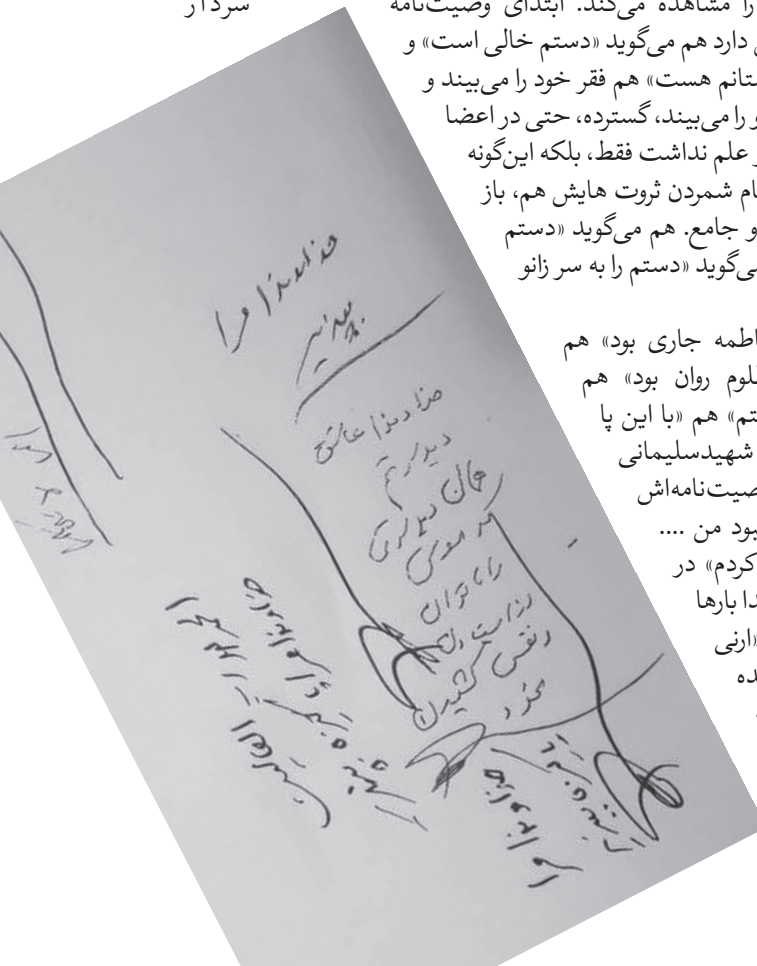 سردار
را مشاهده می‌کند. ابتدای وصیت‌نامه
دارد هم می‌گوید «دستم خالی است» و
ستانم هست» هم فقر خود را می‌بیند و
و را می‌بیند، گسترده، حتی در اعضا
علم نداشت فقط، بلکه این‌گونه
ام شمردن ثروت هایش هم، باز
و جامع. هم می‌گوید «دستم
ی‌گوید «دستم را به سر زانو
اطمه جاری بود» هم
لوم روان بود» هم
تم» هم «با این پا
شهیدسلیمانی
صیت‌نامه‌اش
بود من ....
کردم» در
دا بارها
«ارنی
ده
خداوندا مرا
بپذیر
خداوندا عاشق
دیدارتم
همان دیداری
که موسی
را ناتوان
از ایستادن
و نفس کشیدن
نمود
خداوندا مرا
پاکیزه بپذیر
الحمد لله رب العالمین
خداوندا مرا پاکیزه
بپذیر